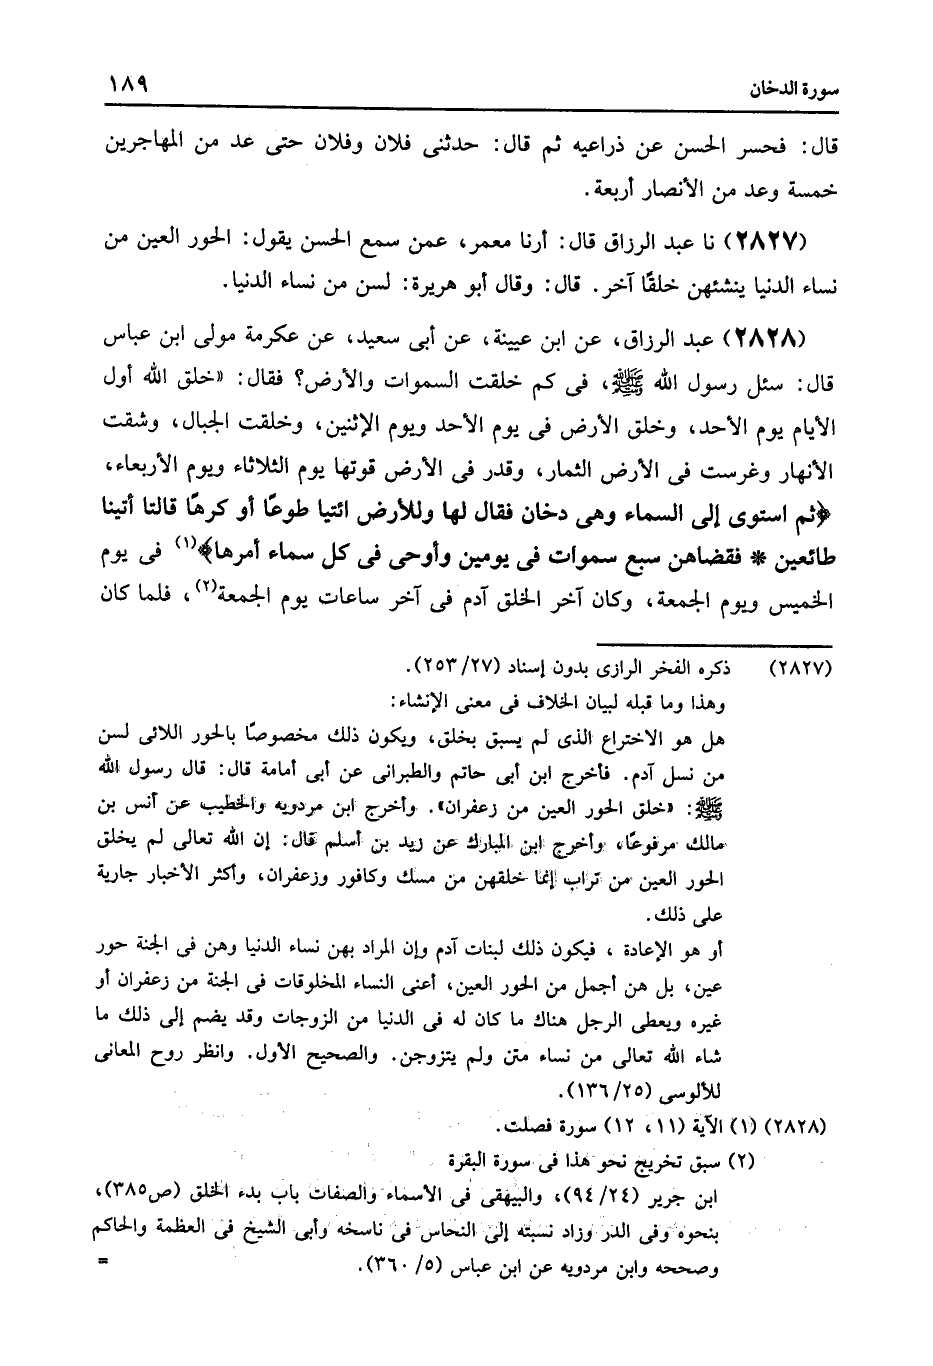 سورة الدخان ١٨٩
قال: فحسر الحسن عن ذراعيه ثم قال: حدثنى فلان وفلان حتى عد من المهاجرين
خمسة وعد من الأنصار أربعة.
(٢٨٢٧) نا عبد الرزاق قال: أرنا معمر، عمن سمع الحسن يقول: الحور العين من
نساء الدنيا ينشئهن خلقًا آخر. قال: وقال أبو هريرة: لسن من نساء الدنيا.
(٢٨٢٨) عبد الرزاق، عن ابن عيينة، عن أبى سعيد، عن عكرمة مولى ابن عباس
قال: سئل رسول الله ﷺ، فى كم خلقت السموات والأرض؟ فقال: «خلق الله أول
الأيام يوم الأحد، وخلق الأرض فى يوم الأحد ويوم الإثنين، وخلقت الجبال، وشقت
الأنهار وغرست فى الأرض الثمار، وقدر فى الأرض قوتها يوم الثلاثاء ويوم الأربعاء،
﴿ثم استوى إلى السماء وهى دخان فقال لها وللأرض ائتيا طوعًا أو كرهًا قالتا أتينا
طائعين * فقضاهن سبع سموات فى يومين وأوحى فى كل سماء أمرها﴾(١) فى يوم
الخميس ويوم الجمعة، وكان آخر الخلق آدم فى آخر ساعات يوم الجمعة(٢)، فلما كان
(٢٨٢٧) ذكره الفخر الرازى بدون إسناد (٢٧/ ٢٥٣).
وهذا وما قبله لبيان الخلاف فى معنى الإنشاء:
هل هو الاختراع الذى لم يسبق بخلق، ويكون ذلك مخصوصًا بالحور اللائى لسن
من نسل آدم. فأخرج ابن أبى حاتم والطبرانى عن أبى أمامة قال: قال رسول الله
ﷺ: «خلق الحور العين من زعفران». وأخرج ابن مردويه والخطيب عن أنس بن
مالك مرفوعًا، وأخرج ابن المبارك عن زيد بن أسلم قال: إن الله تعالى لم يخلق
الحور العين من تراب إنما خلقهن من مسك وكافور وزعفران، وأكثر الأخبار جارية
على ذلك.
أو هو الإعادة ، فيكون ذلك لبنات آدم وإن المراد بهن نساء الدنيا وهن فى الجنة حور
عين، بل هن أجمل من الحور العين، أعنى النساء المخلوقات فى الجنة من زعفران أو
غيره ويعطى الرجل هناك ما كان له فى الدنيا من الزوجات وقد يضم إلى ذلك ما
شاء الله تعالى من نساء متن ولم يتزوجن. والصحيح الأول. وانظر روح المعانى
للألوسى (٢٥/ ١٣٦).
(٢٨٢٨) (١) الآية (١١، ١٢) سورة فصلت.
(٢) سبق تخريج نحو هذا فى سورة البقرة
ابن جرير (٢٤/ ٩٤)، والبيهقى فى الأسماء والصفات باب بدء الخلق (ص٣٨٥)،
بنحوه وفى الدر وزاد نسبته إلى النحاس فى ناسخه وأبى الشيخ فى العظمة والحاكم
وصححه وابن مردويه عن ابن عباس (٥/ ٣٦٠). =